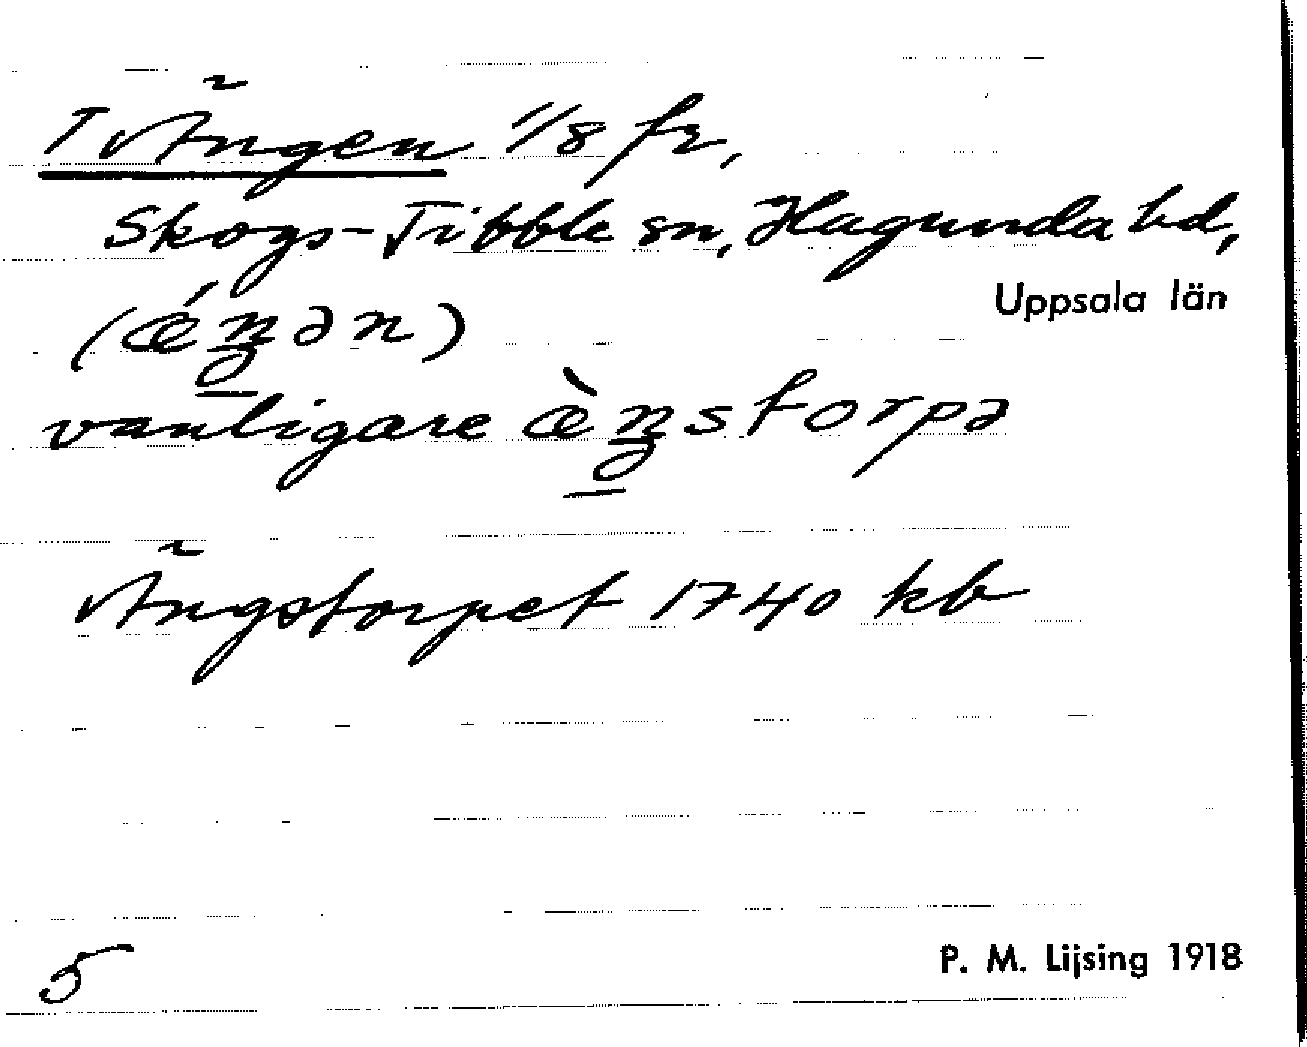 Ängen 1/8 fr,
Skogs-Tibble sn, Hagunda hd,
Uppsala län
(ǽŋən)
vanligare æ̀ŋstorpə
Ängstorpet 1740 kb
5
P. M. Lijsing 1918